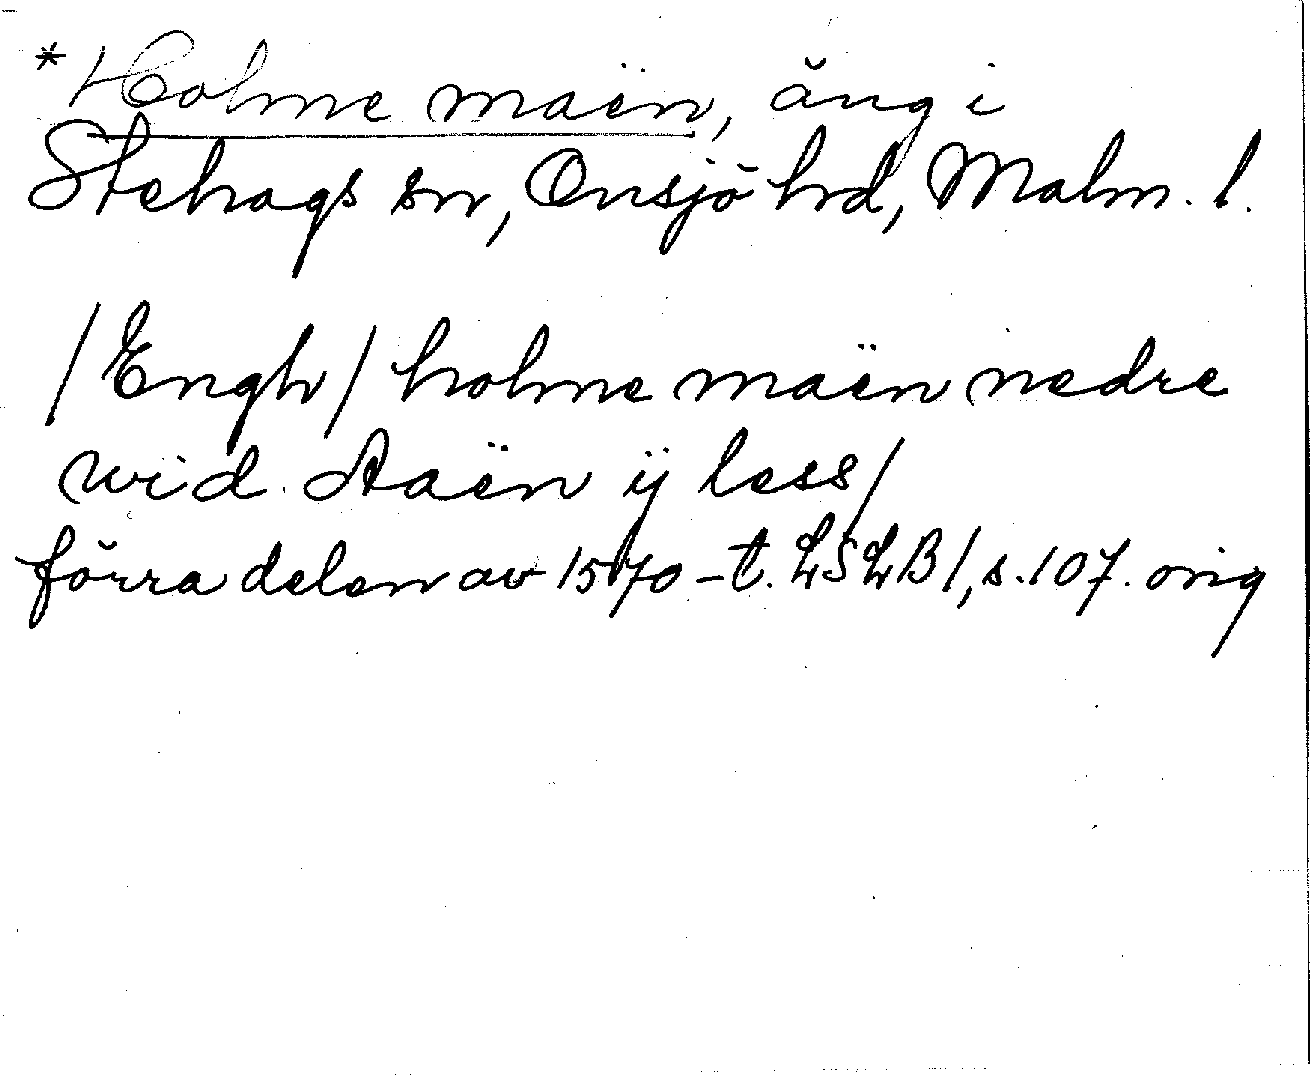 *Holme maën, äng i
Stehags sn, Onsjö hrd, Malm. l.
/Engh/ holme maën nedre
wid Aaën ÿ less/
förra delen av 1570-t. LSLB1, s.107. orig